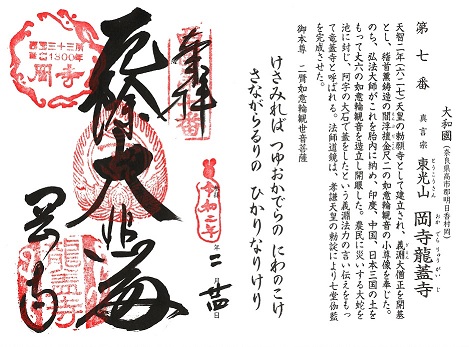 第七番
大和國（奈良県高市郡明日香村岡）
真言宗 東光山 岡寺龍蓋寺
とうこうさん
おかでらりゅうがいじ
天智二年（六二七）天皇の勅願寺として建立され、義淵大僧正を開基
とし、稽首薫鋳造の閻浮檀金尺二の如意輪観音の小尊像を奉じた。
のち、弘法大師がこれを胎内に納め、印度、中国、日本三国の土を
もって丈六の如意輪観音を造立し開眼した。農民に災いする大蛇を
池に封じ、阿字の大石で蓋をしたという義淵法力の言い伝えをもっ
て竜蓋寺と呼ばれる。法師道鏡は、孝謙天皇の勅談により七堂伽藍
を完成させた。
御本尊 二臂如意輪観世音菩薩
けさみれば つゆおかでらの にわのこけ
さながらるりの ひかりなりけり
奉拝
令和二年二月廿四日
厄除大悲殿
岡寺
西国三十三所
1300年
岡寺
龍蓋寺